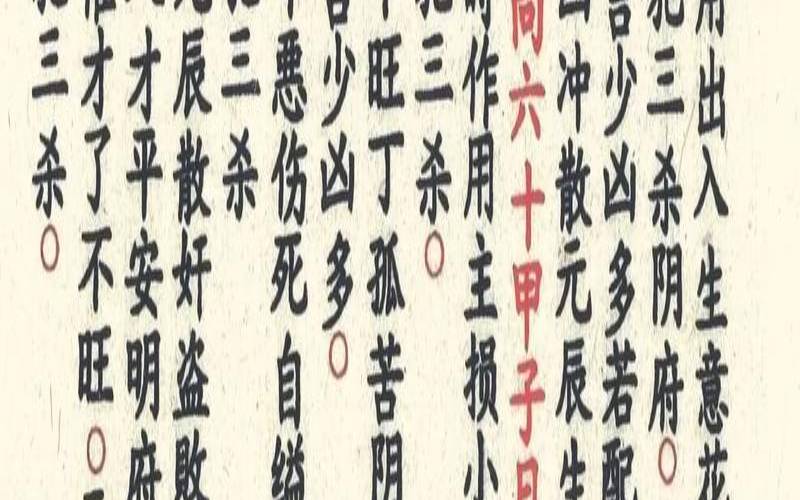 用出入生意花
犯三杀阴府○
吉少凶多若配
山冲散元辰生
向六十甲子日
时作用主损小
犯三杀○
旺丁孤苦阴
吉少凶多○
恶伤死自缢
犯三杀
辰散奸盗败
才平安明府
才了不旺○
犯三杀○